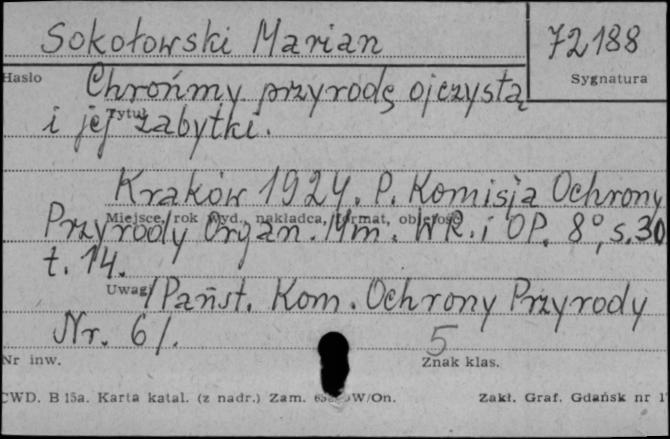 Sokołowski Marian 72188
Hasło Sygnatura
Chrońmy przyrodę ojczystą
Tytuł
i jej zabytki.
Kraków 1924. P. Komisja Ochrony
Miejsce, rok wyd., nakładca, format, objętość
Przyrody Organ. Min. WR. i OP. 8°, s. 30
t. 14.
Uwagi
/Państ. Kom. Ochrony Przyrody
Nr. 6/. 5
Nr inw. Znak klas.
CWD. B 15a. Karta katal. (z nadr.) Zam. W/On. Zakł. Graf. Gdańsk nr 1